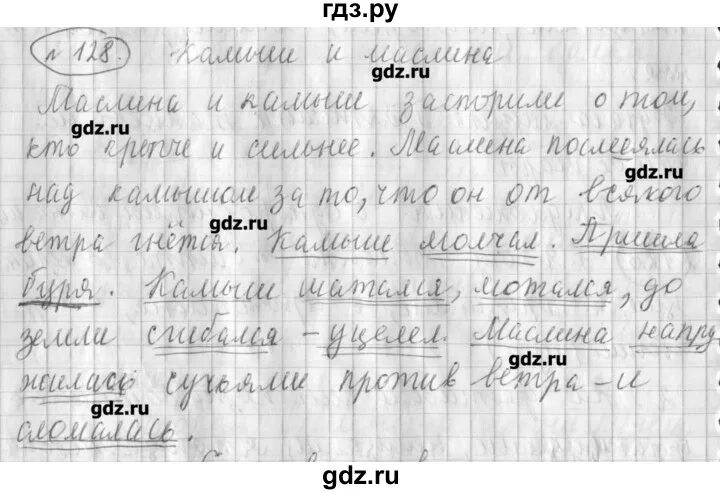 гдз.ру
№ 128. Камыш и маслина
gdz.ru
Маслина и камыш заспорили о том,
gdz.ru
кто крепче и сильнее. Маслина посмеялась
gdz.ru
над камышом за то, что он от всякого
gdz.ru
ветра гнётся. Камыш молчал. Пришла
буря. Камыш шатался, мотался, до
gdz.ru
земли сгибался – уцелел. Маслина напру
gdz.ru
жилась сучьями против ветра – и
gdz.ru
сломалась.
gdz.ru